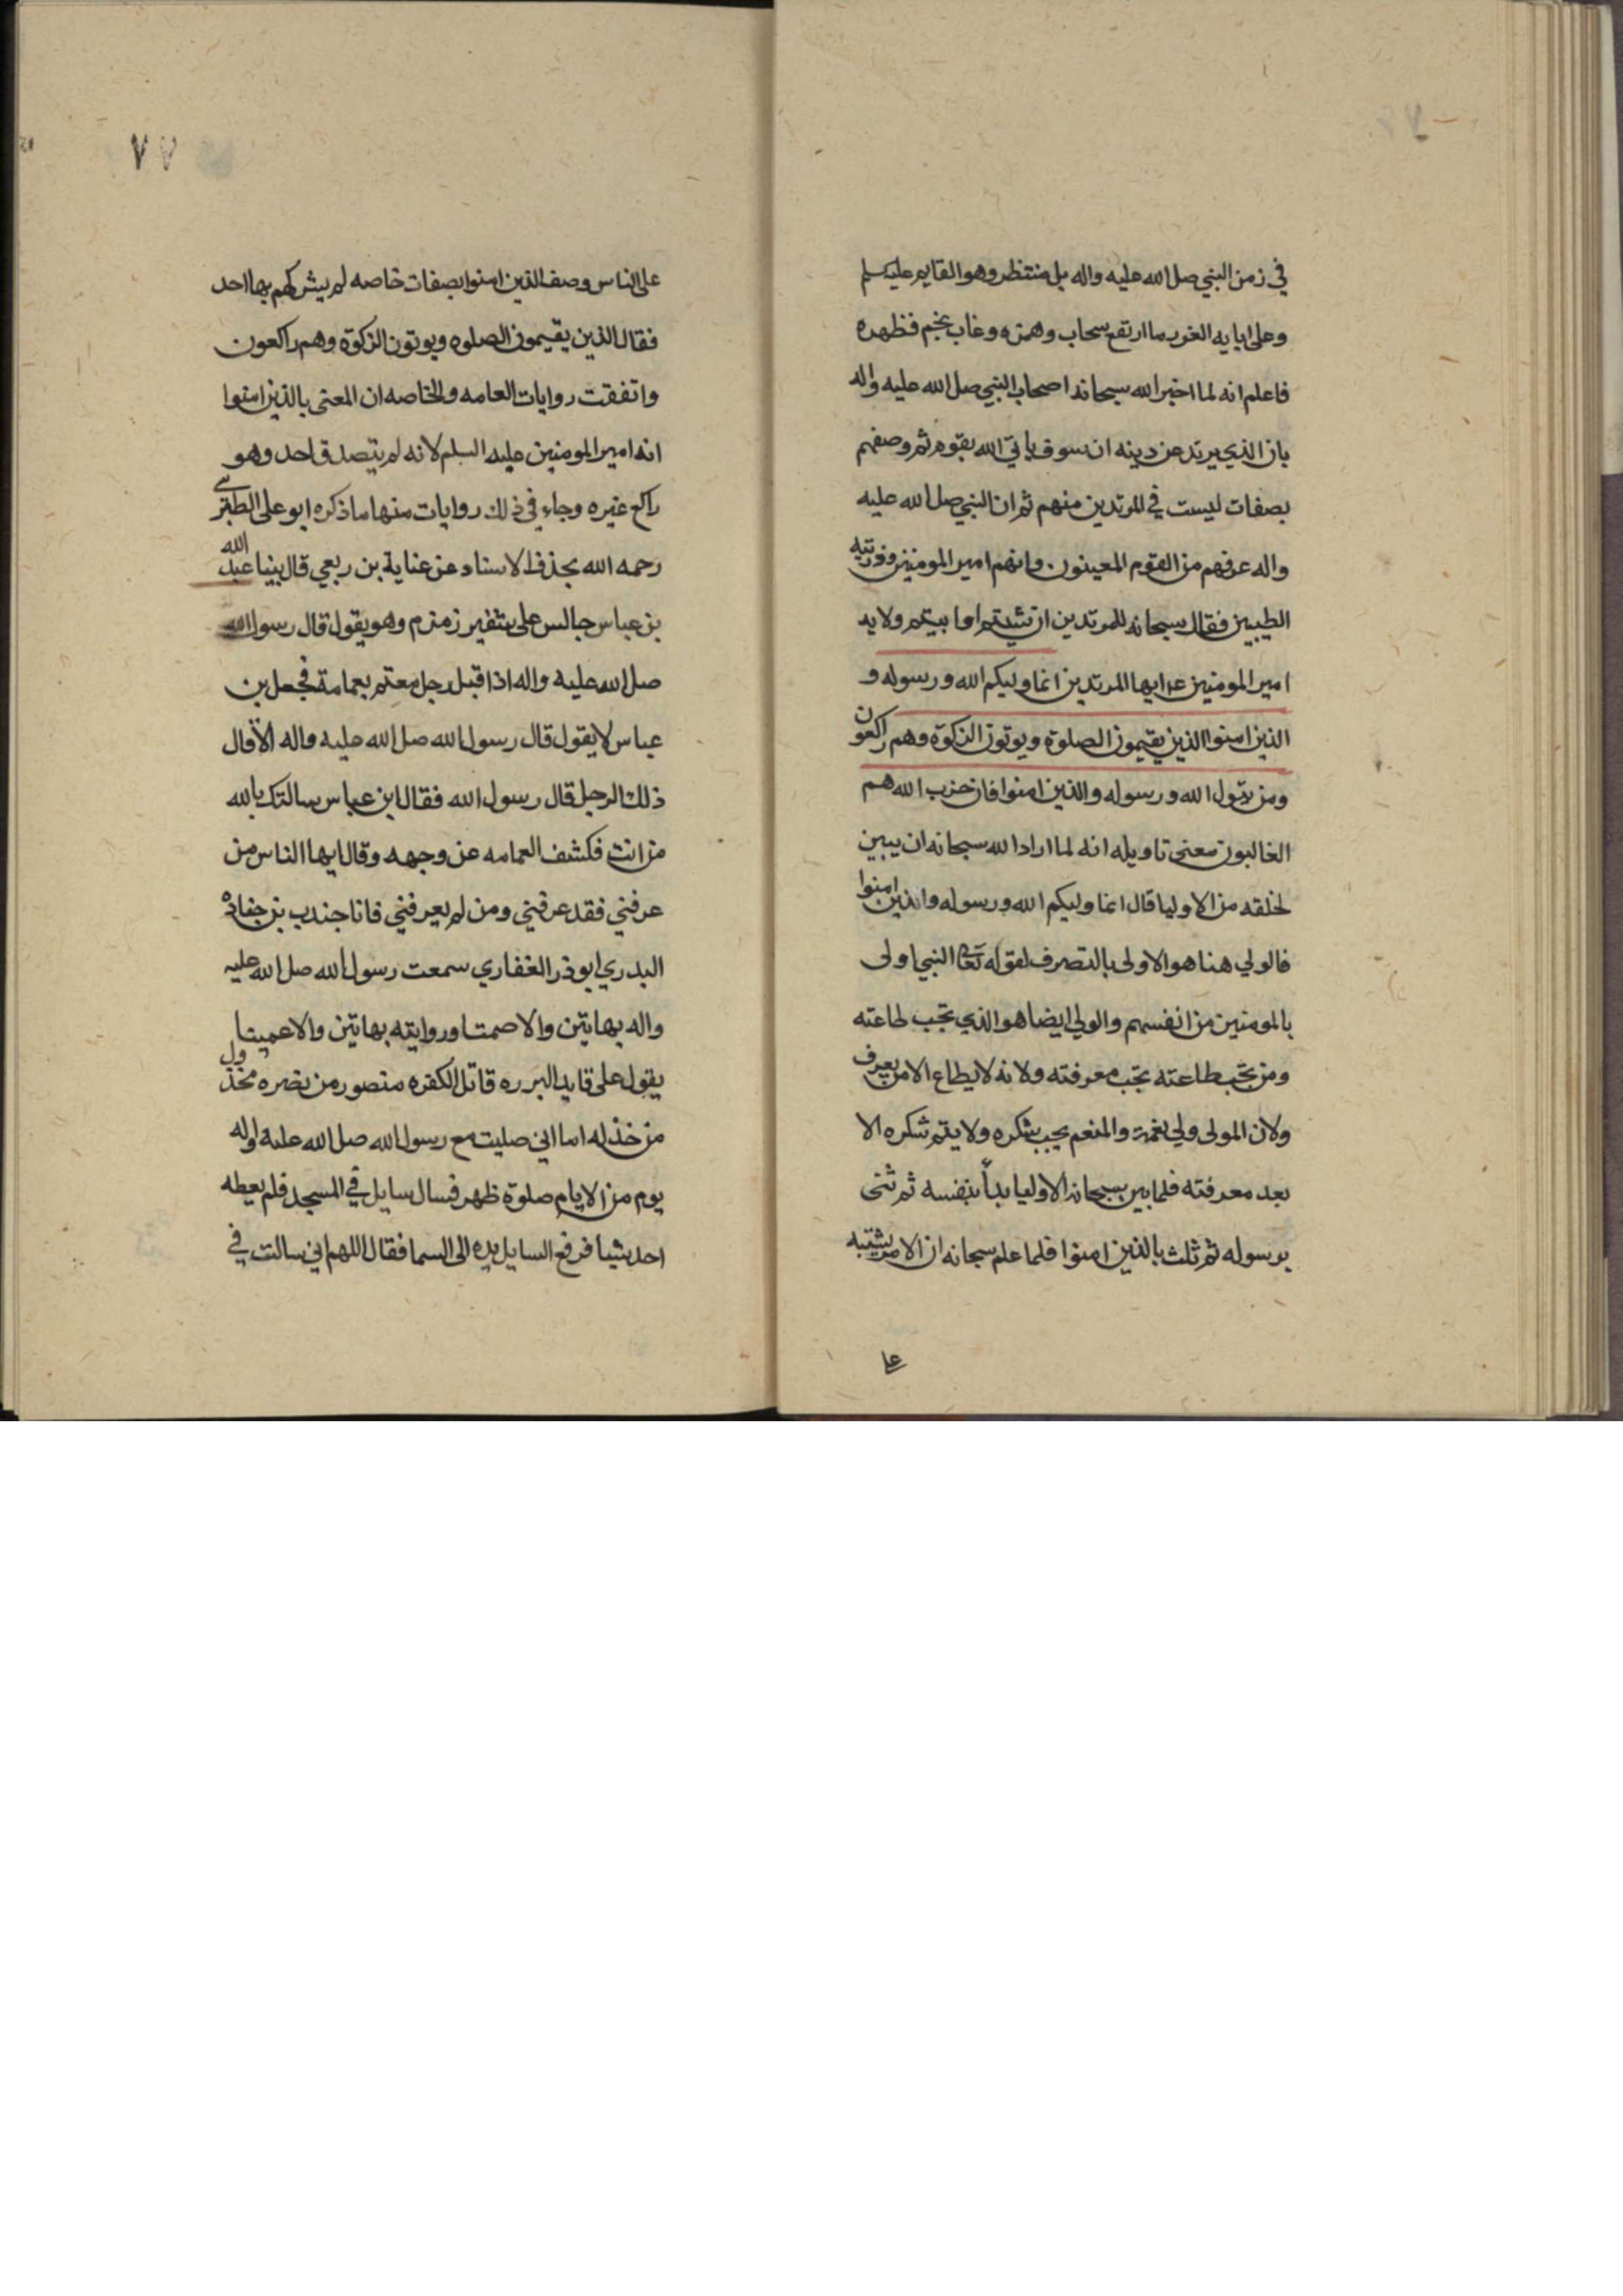 في زمن النبي صلى الله عليه واله بل منتظر وهو القايم عليه السلم
وعلى ابايه الغر ما ارتفع سحاب وهمزه وغاب نجم فظهره
فاعلم انه لما اخبر الله سبحانه اصحاب النبي صلى الله عليه واله
بان الذي يرتد عن دينه ان سوف ياتي الله بقوم ثم وصفهم
بصفات ليست في المرتدين منهم ثم ان النبي صلى الله عليه
واله عرفهم من القوم المعينون وانهم امير المومنين وذريته
الطيبين فقال سبحانه للمرتدين ان شيتم او ابيتم ولايه
امير المومنين ع ايها المرتدين انما وليكم الله ورسوله و
الذين امنوا الذين يقيمون الصلوة ويوتون الزكوة وهم راكعون
ومن يتول الله ورسوله والذين امنوا فان حزب الله هم
الغالبون معنى تاويله انه لما اراد الله سبحانه ان يبين
لخلقه من الاوليا قال انما وليكم الله ورسوله والذين امنوا
فالولي هنا هو الاولى بالتصرف لقوله تعالى النبي اولى
بالمومنين من انفسهم والولي ايضا هو الذي تجب طاعته
ومن تجب طاعته تجب معرفته ولانه لا يطاع الا من يعرف
ولان المولى ولي نعمة والمنعم يجب شكره ولا يتم شكره الا
بعد معرفته فلما بين سبحانه الاوليا بدأ بنفسه ثم ثنى
برسوله ثم ثلث بالذين امنوا فلما علم سبحانه ان الامر يشتبه
على
٧٧
على الناس وصف الذين امنوا بصفات خاصه لم يشركهم بها احد
فقال الذين يقيمون الصلوه ويوتون الزكوة وهم راكعون
واتفقت روايات العامه والخاصه ان المعنى بالذين امنوا
انه امير المومنين عليه السلم لانه لم يتصدق احد وهو
راكع غيره وجاء في ذلك روايات منها ما ذكره ابو على الطبرسي
رحمه الله بحذف الاسناد عن عناية بن ربعي قال بينا عبد الله
بن عباس جالس على شفير زمزم وهو يقول قال رسول الله
صلى الله عليه واله اذ اقبل رجل معتم بعمامة فجعل بن
عباس لا يقول قال رسول الله صلى الله عليه واله الا قال
ذلك الرجل قال رسول الله فقال ابن عباس سالتك بالله
من انت فكشف العمامه عن وجهه وقال ايها الناس من
عرفني فقد عرفني ومن لم يعرفني فانا جندب بن جناده
البدري ابو ذر الغفاري سمعت رسول الله صلى الله عليه
واله بهاتين والا صمتا ورايته بهاتين والا عميتا
يقول على قايد البرره قاتل الكفره منصور من نصره مخذول
من خذله اما اني صليت مع رسول الله صلى الله عليه واله
يوم من الايام صلوة ظهر فسال سايل في المسجد فلم يعطه
احد شيا فرفع السايل يده الى السما فقال اللهم اني سالت في